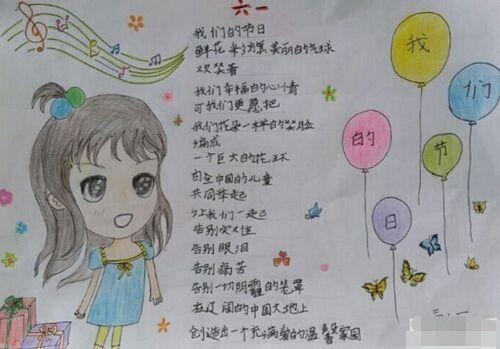 六一
我们的节日
鲜花 彩 美丽的气球
欢笑着
我们幸福的心
可我们更愿把
我们花朵一样的笑脸
编成
一个巨大的花环
由全中国的儿童
共同举起
让我们一起
告别灾难
告别眼泪
告别痛苦
告别一切阴霾的笼罩
在辽阔的中国大地上
创造出一个充满爱的温馨家园
我
们
的
节
日
三.一